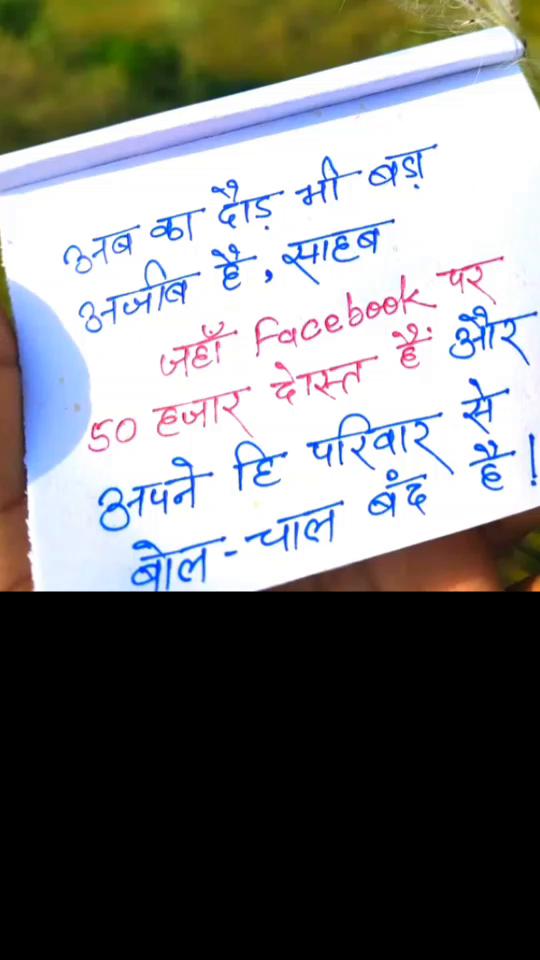 अब का दौड़ भी बड़ा
अजीब है, साहब
जहाँ Facebook पर
50 हजार दोस्त हैं और
अपने हि परिवार से
बोल-चाल बंद है!